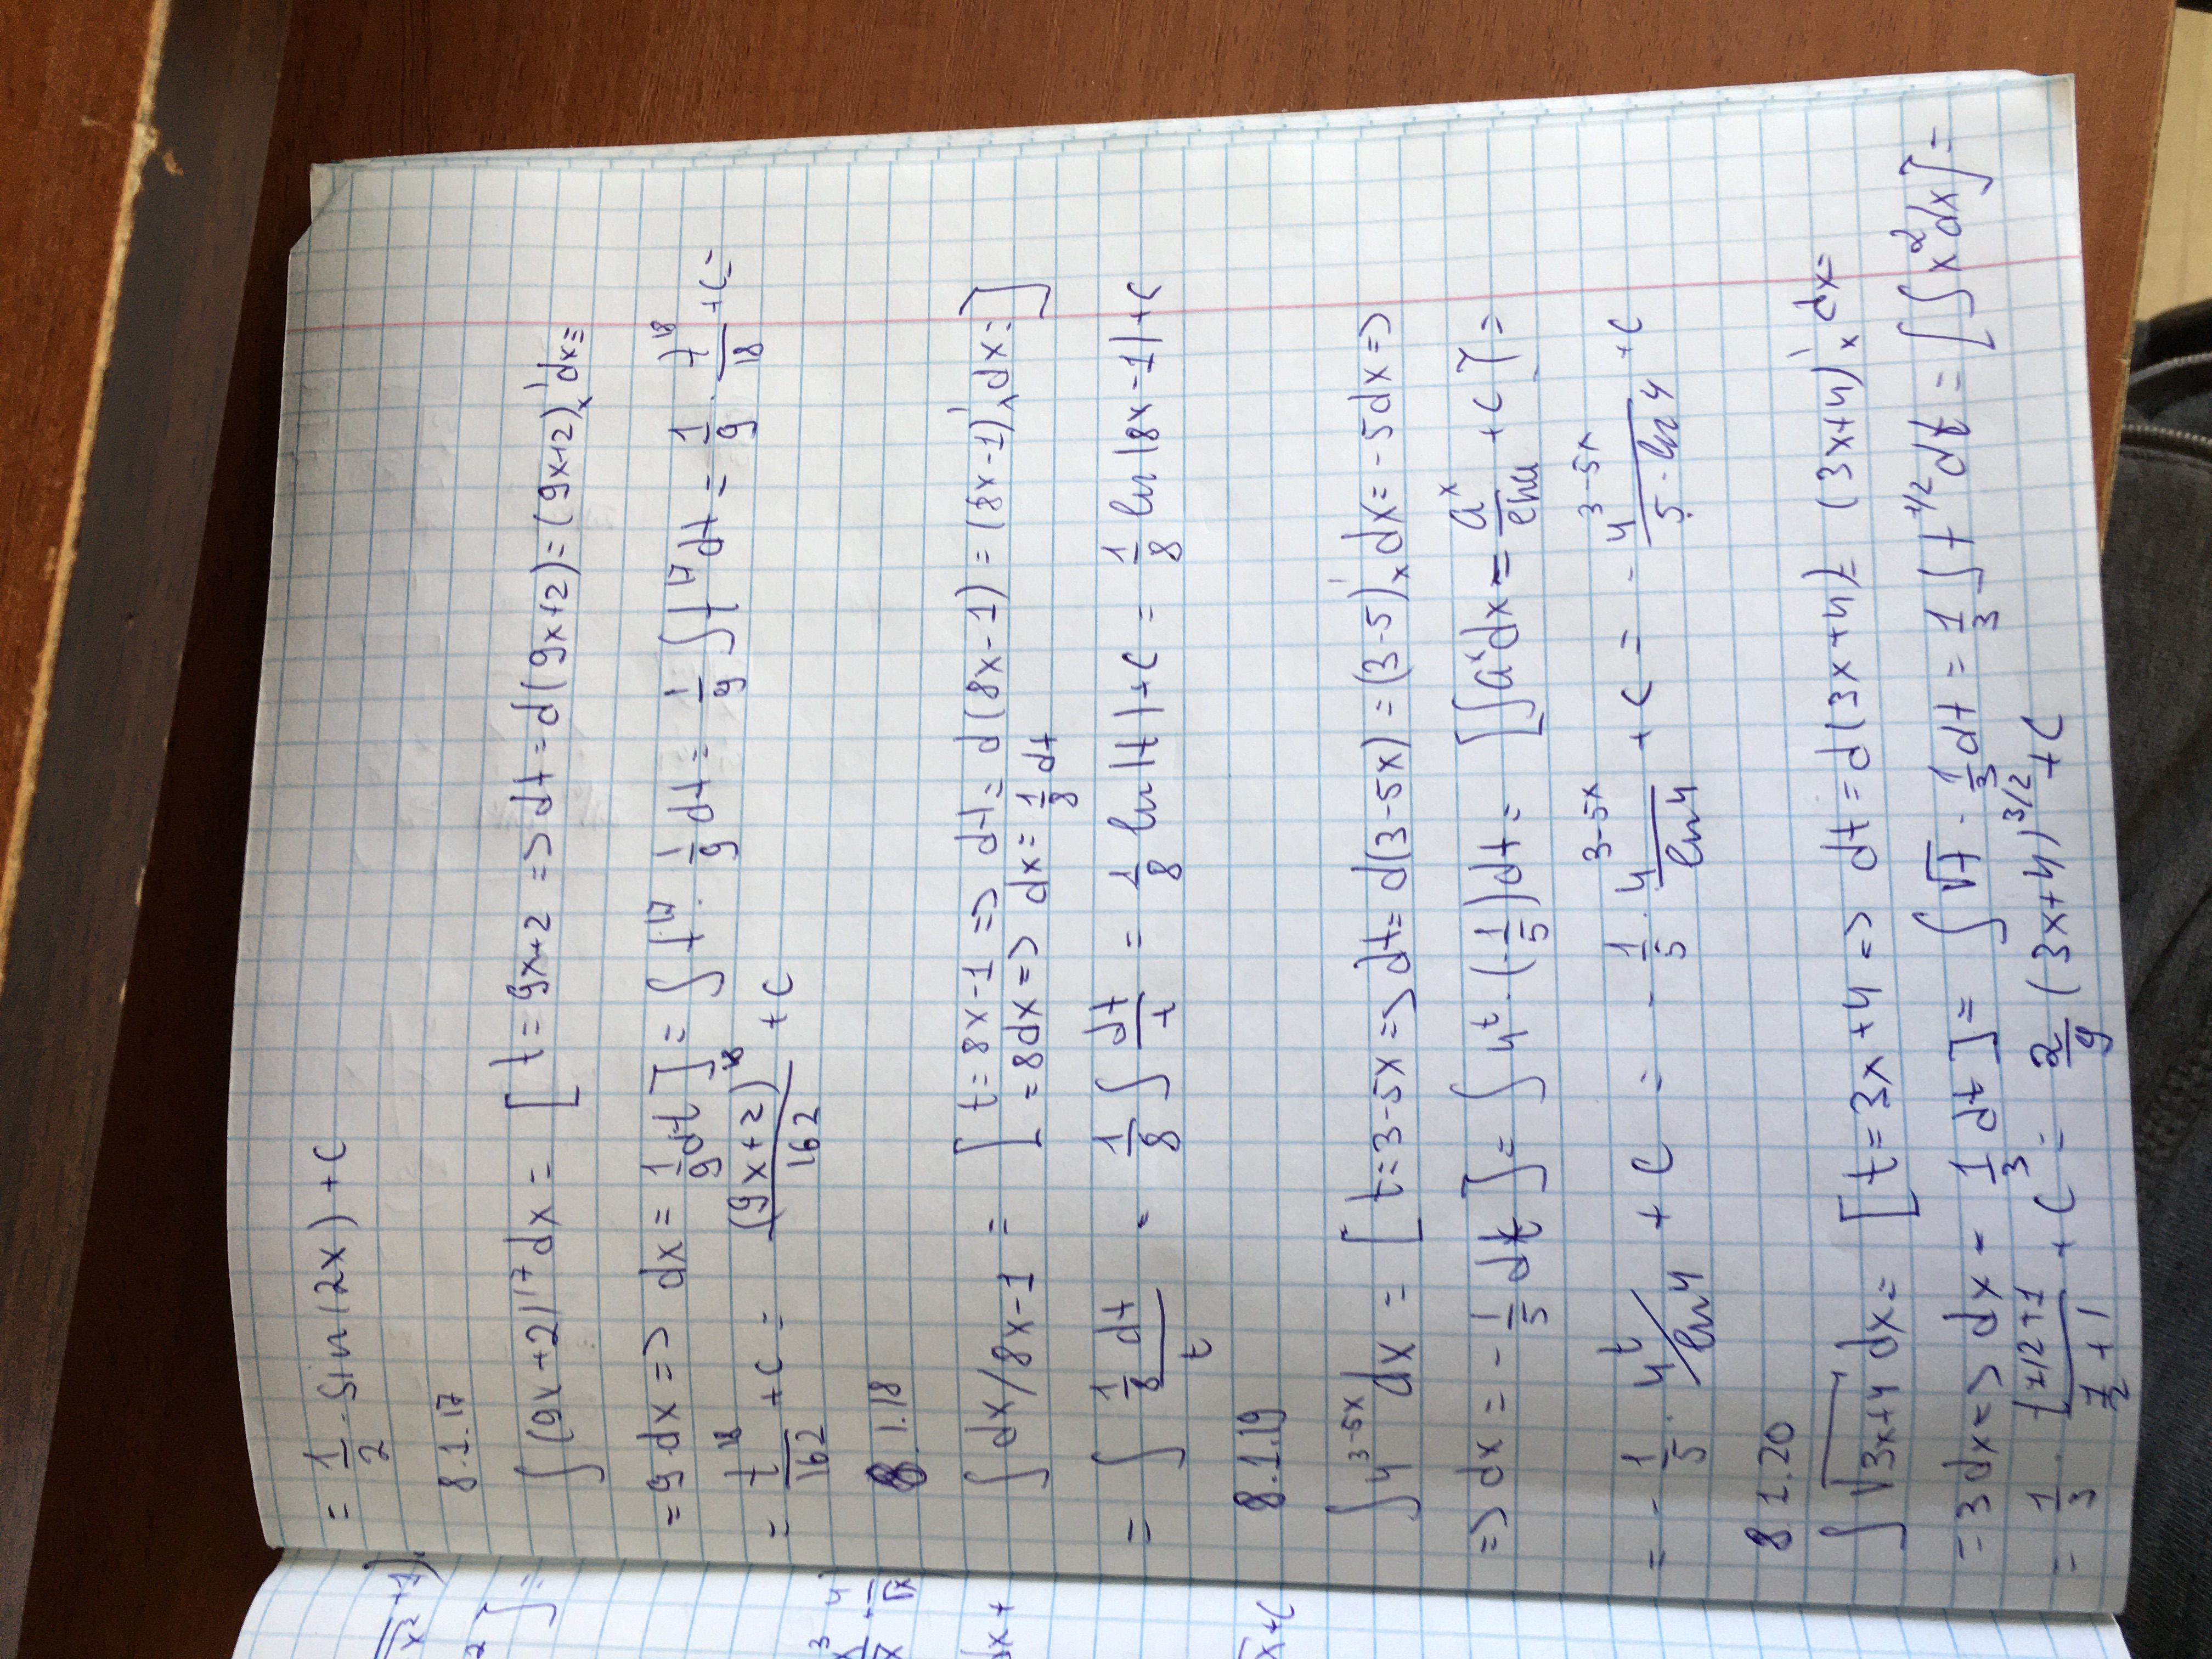 = 1/2 · sin(2x) + C
8.1.17
∫(9x+2)^17 dx = [t = 9x+2 => dt = d(9x+2) = (9x+2)'ₓ dx =
= 9·dx => dx = 1/9 dt] = ∫t^17 · 1/9 dt = 1/9 ∫t^17 dt = 1/9 · t^18/18 + C =
= t^18/162 + C = (9x+2)^18/162 + C
8.1.18
∫dx/8x-1 = [t = 8x-1 => dt = d(8x-1) = (8x-1)'ₓ dx =]
= 8dx => dx = 1/8 dt
= ∫ (1/8 dt)/t - 1/8 ∫ dt/t = 1/8 ln|t| + C = 1/8 ln|8x-1| + C
8.1.19
∫4^(3-5x) dx = [t = 3-5x => dt = d(3-5x) = (3-5)'ₓ dx = -5dx =>
=> dx = -1/5 dt] = ∫4^t · (-1/5)dt = [∫a^x dx = a^x/ln a + C] =
= -1/5 · 4^t/ln4 + C = -1/5 · 4^(3-5x)/ln4 + C = - 4^(3-5x)/(5·ln4) + C
8.1.20
∫√(3x+4) dx = [t = 3x+4 => dt = d(3x+4) = (3x+4)'ₓ dx =
= 3dx => dx - 1/3 dt] = ∫√t · 1/3 dt = 1/3 ∫t^(1/2) dt = [∫x^2 dx] =
= 1/3 · t^(1/2+1)/(1/2+1) + C = 2/9 (3x+4)^(3/2) + C